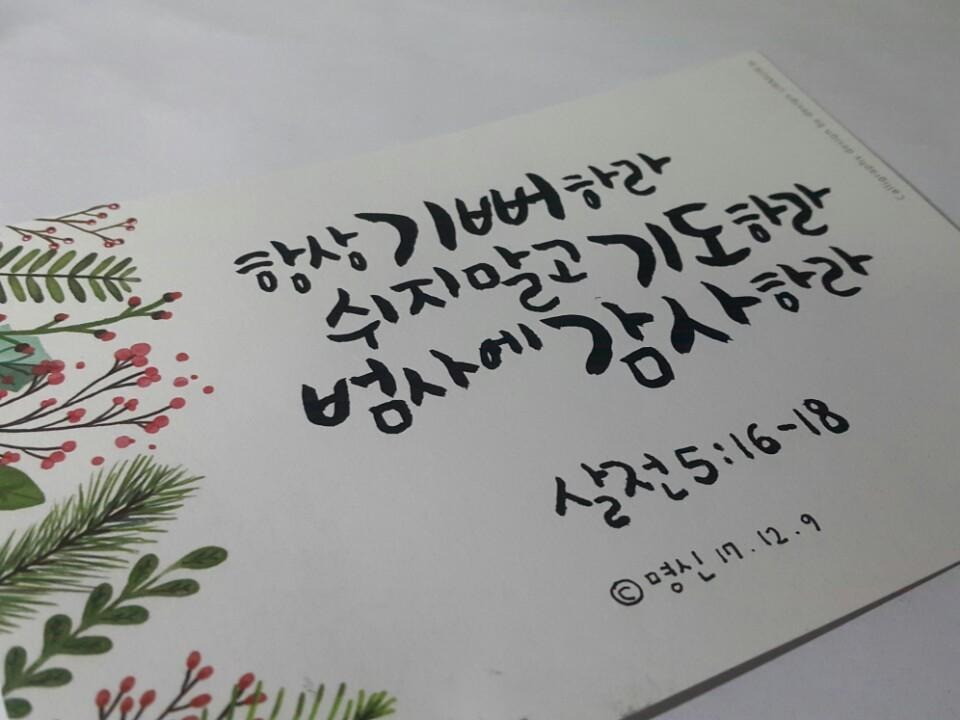 항상 기뻐하라
쉬지말고 기도하라
범사에 감사하라
살전 5:16-18
© 명신 17.12.9